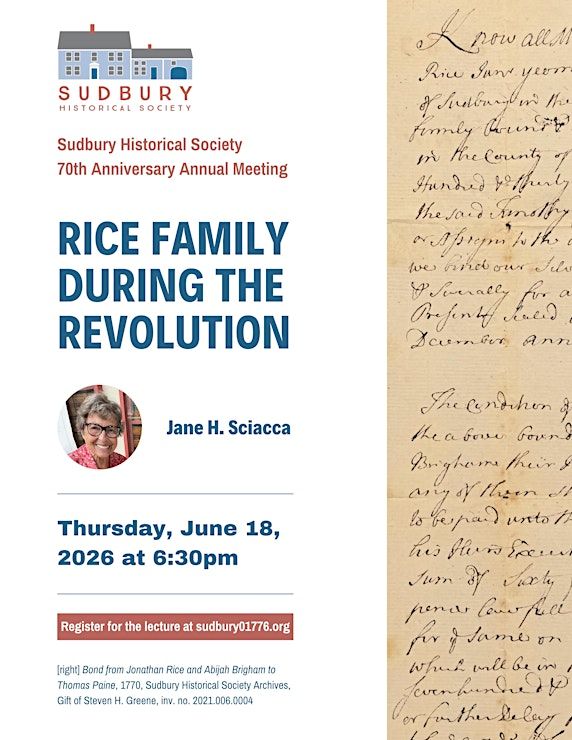 SUDBURY
HISTORICAL SOCIETY
Sudbury Historical Society
70th Anniversary Annual Meeting
RICE FAMILY
DURING THE
REVOLUTION
Jane H. Sciacca
Thursday, June 18,
2026 at 6:30pm
Register for the lecture at sudbury01776.org
[right] Bond from Jonathan Rice and Abijah Brigham to
Thomas Paine, 1770, Sudbury Historical Society Archives,
Gift of Steven H. Greene, inv. no. 2021.006.0004
Know all M
Rice Junr yeom
of Sudbury in the
firmly Bound &
in the County of
Hundred & thirty
the said Timothy
or Assigns to the
we bind our Selv
& Severally for a
Present Sealed
December Ann
The Condition of
the above bound
Brighame their
any of them Sh
to be paid unto th
his Heirs Execut
Sum of Sixty
pence Lawfull
for & Same on
which will be in
Sevenhundred &
or further Delay